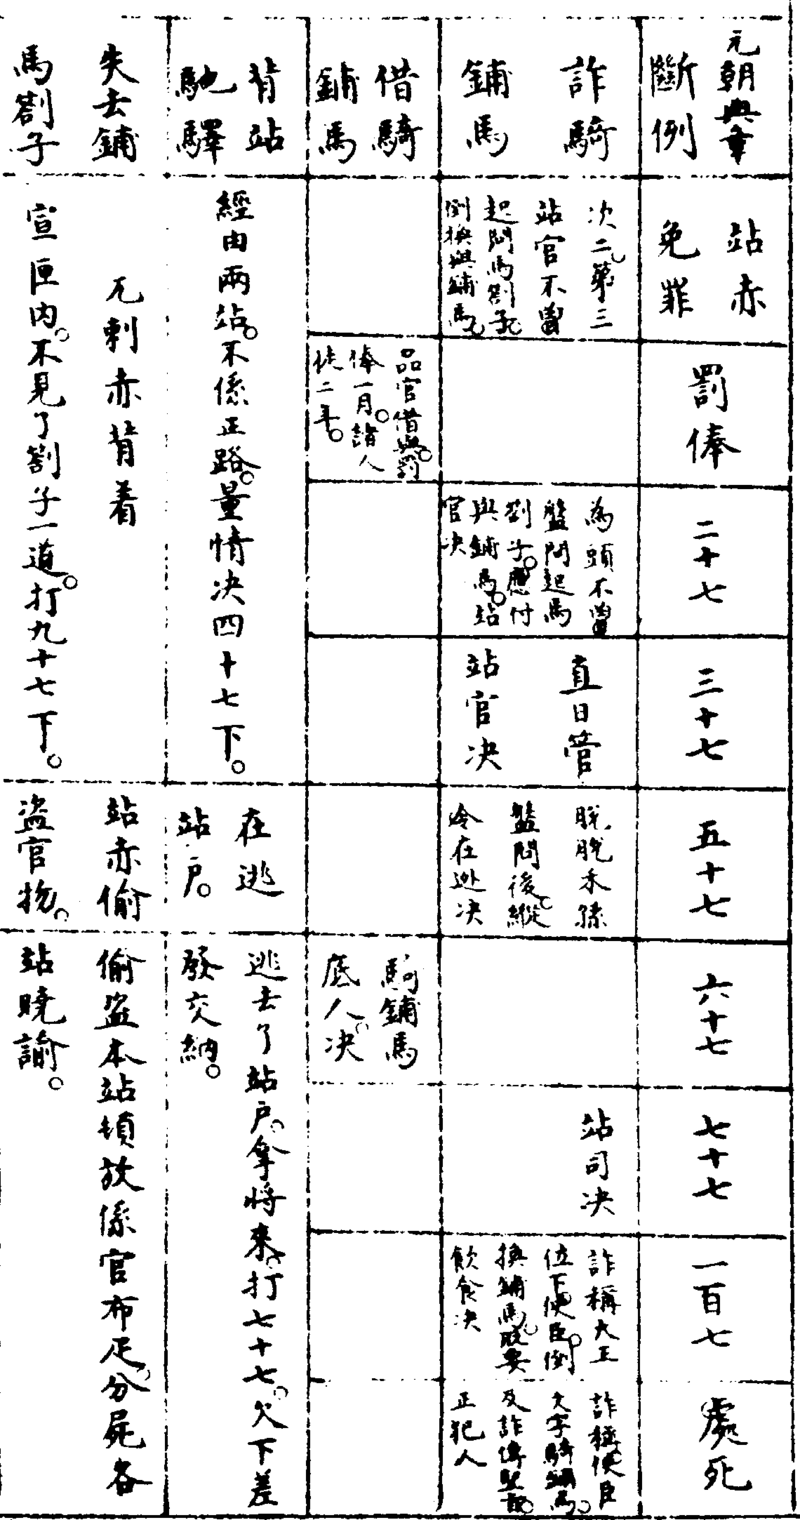 元朝典章
斷例
站赤
免罪
罰俸
二十七
三十七
五十七
六十七
七十七
一百七
處死
詐騎
鋪馬
次二。第三
站官不曾
起問馬劄子。
倒換與鋪馬。
為頭不曾
盤問起馬
劄子。應付
與鋪馬。站
官決
直日管
站官決
脫脫禾孫
盤問後。縱
令在逃決
站司決
詐稱大王
位下使臣。倒
換鋪馬。脫要
飲食決
詐稱使臣
文字騎鋪馬。
及詐傳聖旨。
正犯人
借騎
鋪馬
品官借與。罰
俸一月。諸人
徒二年。
騎鋪馬
底人。決
背站
馳驛
經由兩站。不係正路。量情決四十七下。
在逃
站戶。
逃去了站戶。拿將來。打七十七。欠下差
發交納。
失去鋪
馬劄子
兀剌赤背着
宣匣內。不見了劄子一道。打九十七下。
站赤偷
盜官物。
偷盜本站頓放係官布疋。分屍各
站曉諭。